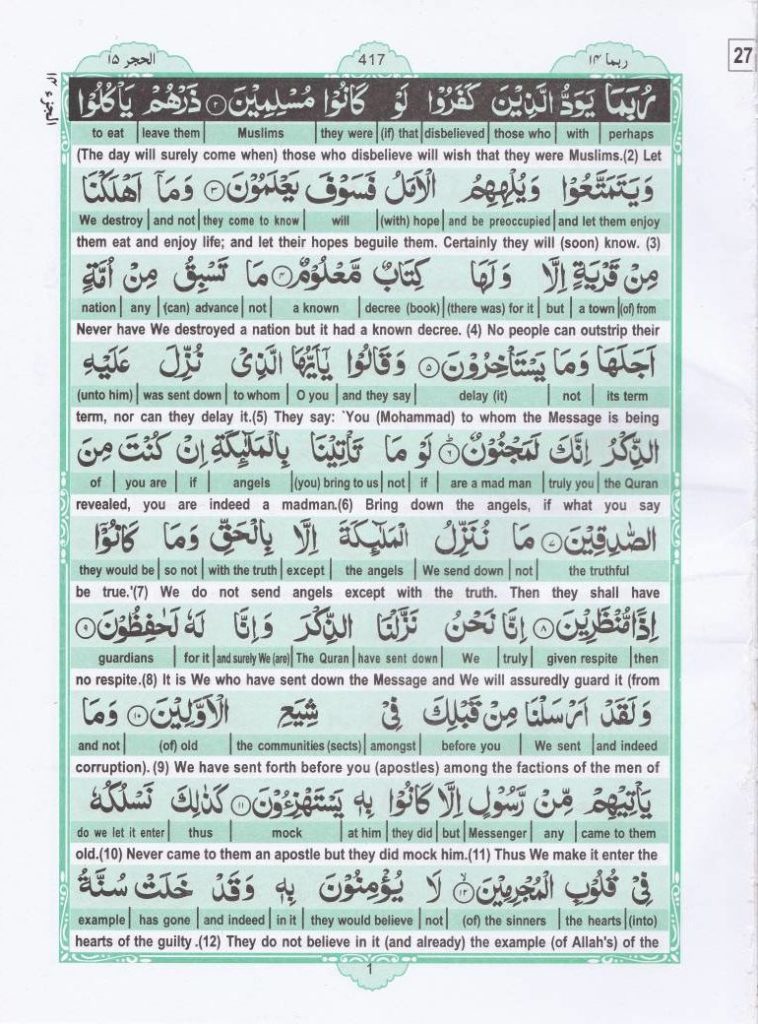 ربما ۱۴
417
الحجر ۱۵
27
رُبَمَا يَوَدُّ الَّذِيْنَ كَفَرُوْا لَوْ كَانُوْا مُسْلِمِيْنَ ۲ ذَرْهُمْ يَاْكُلُوْا
to eat | leave them | Muslims | they were | (if) that | disbelieved | those who | with | perhaps
(The day will surely come when) those who disbelieve will wish that they were Muslims.(2) Let
وَيَتَمَتَّعُوْا وَيُلْهِهِمُ الْاَمَلُ فَسَوْفَ يَعْلَمُوْنَ ۳ وَمَآ اَهْلَكْنَا
We destroy | and not | they come to know | will | (with) hope | and be preoccupied | and let them enjoy
them eat and enjoy life; and let their hopes beguile them. Certainly they will (soon) know. (3)
مِنْ قَرْيَةٍ اِلَّا وَلَهَا كِتَابٌ مَّعْلُوْمٌ ۴ مَا تَسْبِقُ مِنْ اُمَّةٍ
nation | any | (can) advance | not | a known | decree (book) | (there was) for it | but | a town | (of) from
Never have We destroyed a nation but it had a known decree. (4) No people can outstrip their
اَجَلَهَا وَمَا يَسْتَاْخِرُوْنَ ۵ وَقَالُوْا يٰٓاَيُّهَا الَّذِىْ نُزِّلَ عَلَيْهِ
(unto him) | was sent down | to whom | O you | and they say | delay (it) | not | its term
term, nor can they delay it.(5) They say: `You (Mohammad) to whom the Message is being
الذِّكْرُ اِنَّكَ لَمَجْنُوْنٌ ۶ لَوْ مَا تَاْتِيْنَا بِالْمَلٰٓئِكَةِ اِنْ كُنْتَ مِنَ
of | you are | if | angels | (you) bring to us | not | if | are a mad man | truly you | the Quran
revealed, you are indeed a madman.(6) Bring down the angels, if what you say
الصّٰدِقِيْنَ ۷ مَا نُنَزِّلُ الْمَلٰٓئِكَةَ اِلَّا بِالْحَقِّ وَمَا كَانُوْٓا
they would be | so not | with the truth | except | the angels | We send down | not | the truthful
be true.'(7) We do not send angels except with the truth. Then they shall have
اِذًا مُّنْظَرِيْنَ ۸ اِنَّا نَحْنُ نَزَّلْنَا الذِّكْرَ وَاِنَّا لَهٗ لَحٰفِظُوْنَ ۹
guardians | for it | and surely We (are) | The Quran | have sent down | We | truly | given respite | then
no respite.(8) It is We who have sent down the Message and We will assuredly guard it (from
وَلَقَدْ اَرْسَلْنَا مِنْ قَبْلِكَ فِىْ شِيَعِ الْاَوَّلِيْنَ ۱۰ وَمَا
and not | (of) old | the communities (sects) | amongst | before you | We sent | and indeed
corruption). (9) We have sent forth before you (apostles) among the factions of the men of
يَاْتِيْهِمْ مِّنْ رَّسُوْلٍ اِلَّا كَانُوْا بِهٖ يَسْتَهْزِءُوْنَ ۱۱ كَذٰلِكَ نَسْلُكُهٗ
do we let it enter | thus | mock | at him | they did | but | Messenger | any | came to them
old.(10) Never came to them an apostle but they did mock him.(11) Thus We make it enter the
فِىْ قُلُوْبِ الْمُجْرِمِيْنَ ۱۲ لَا يُؤْمِنُوْنَ بِهٖ وَقَدْ خَلَتْ سُنَّةُ
example | has gone | and indeed | in it | they would believe | not | (of) the sinners | the hearts | (into)
hearts of the guilty .(12) They do not believe in it (and already) the example (of Allah's) of the
1